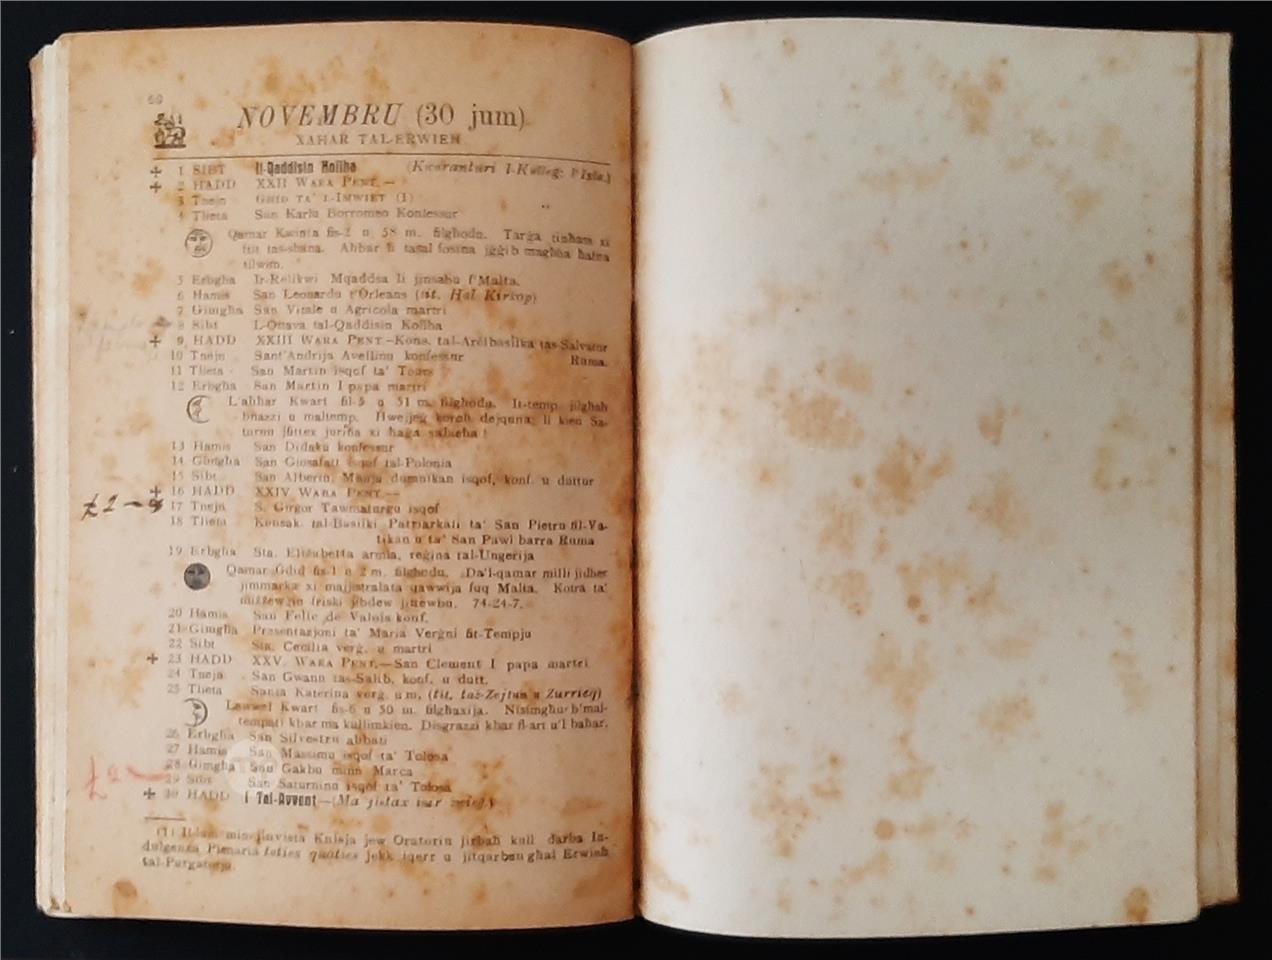 60
NOVEMBRU (30 jum)
XAHAR TAL-ERWIEH
✠ 1 SIBT Il-Qaddisin Kollha (Kwaranturi l-Kulleg: l'Isla.)
✠ 2 HADD XXII WARA PENT.—
3 Tnejn GHID TA' L-IMWIET (1)
4 Tlieta San Karlu Borromeo Konfessur
Qamar Kwinta fis-2 u 58 m. filghodu. Targa' tinhass xi
ftit tas-shana. Ahbar li tasal fosthna iggib maghha hafna
tilwim.
5 Erbgha Ir-Relikwi Mqaddsa li jinsabu f'Malta.
6 Hamis San Leonardu t'Orleans (tit. Hal Kirkop)
7 Gimgha San Vitale u Agricola martri
8 Sibt L-Ottava tal-Qaddisin Kollha
✠ 9 HADD XXIII WARA PENT—Kons. tal-Arcibasilka tas-Salvatur
10 Tnejn Sant'Andrija Avellinu konfessur Ruma.
11 Tlieta San Martin isqof ta' Tours
12 Erbgha San Martin I papa martri
L'ahhar Kwart fil-5 u 31 m. filghodu. It-temp jilghab
bnazzi u maltemp. Hwejjeg koroh dejquna; li kien Sa-
turnu jfittex jurina xi haga sabieha!
13 Hamis San Didaku konfessur
14 Gimgha San Giosafatt isqof tal-Polonia
15 Sibt San Albertu Manju dumnikan isqof, konf. u duttur
✠ 16 HADD XXIV WARA PENT.—
£2 — 17 Tnejn S. Girgor Tawmaturgu isqof
18 Tlieta Konsak. tal-Basilki Patriarkali ta' San Pietru fil-Va-
tikan u ta' San Pawl barra Ruma
19 Erbgha Sta. Elizabetta armla, regina tal-Ungerija
Qamar Gdid fis-1 u 2 m. filghodu. Da'l-qamar milli jidher
jimmarka xi majjistralata qawwija fuq Malta. Kotra ta'
mizzewgin friski jibdew jittewbu. 74-24-7.
20 Hamis San Felic de Valois konf.
21 Gimgha Presentazjoni ta' Maria Vergni fit-Tempju
22 Sibt Sta. Cecilia verg. u martri
✠ 23 HADD XXV. WARA PENT.—San Clement I papa martri
24 Tnejn San Gwann tas-Salib, konf. u dutt.
25 Tlieta Santa Katerina verg. u m. (tit. taz-Zejtun u Zurrieq)
L-ewwel Kwart fis-6 u 50 m. filghaxija. Nisimghu b'mal-
tempati kbar ma kullimkien. Disgrazzi kbar fl-art u'l bahar.
26 Erbgha San Silvestru abbati
27 Hamis San Massimu isqof ta' Tolosa
28 Gimgha San Gakbu minn Marca
£2 — 29 Sibt San Saturninu isqof ta' Tolosa
✠ 30 HADD I Tal-Avvent—(Ma jistax isir zwieg.)
(1) Illum min jinvista Knisja jew Oratorju jirbah kull darba In-
dulgenza Plenaria toties quoties jekk iqerr u jitqarben ghal Erwieh
tal-Purgatorju.